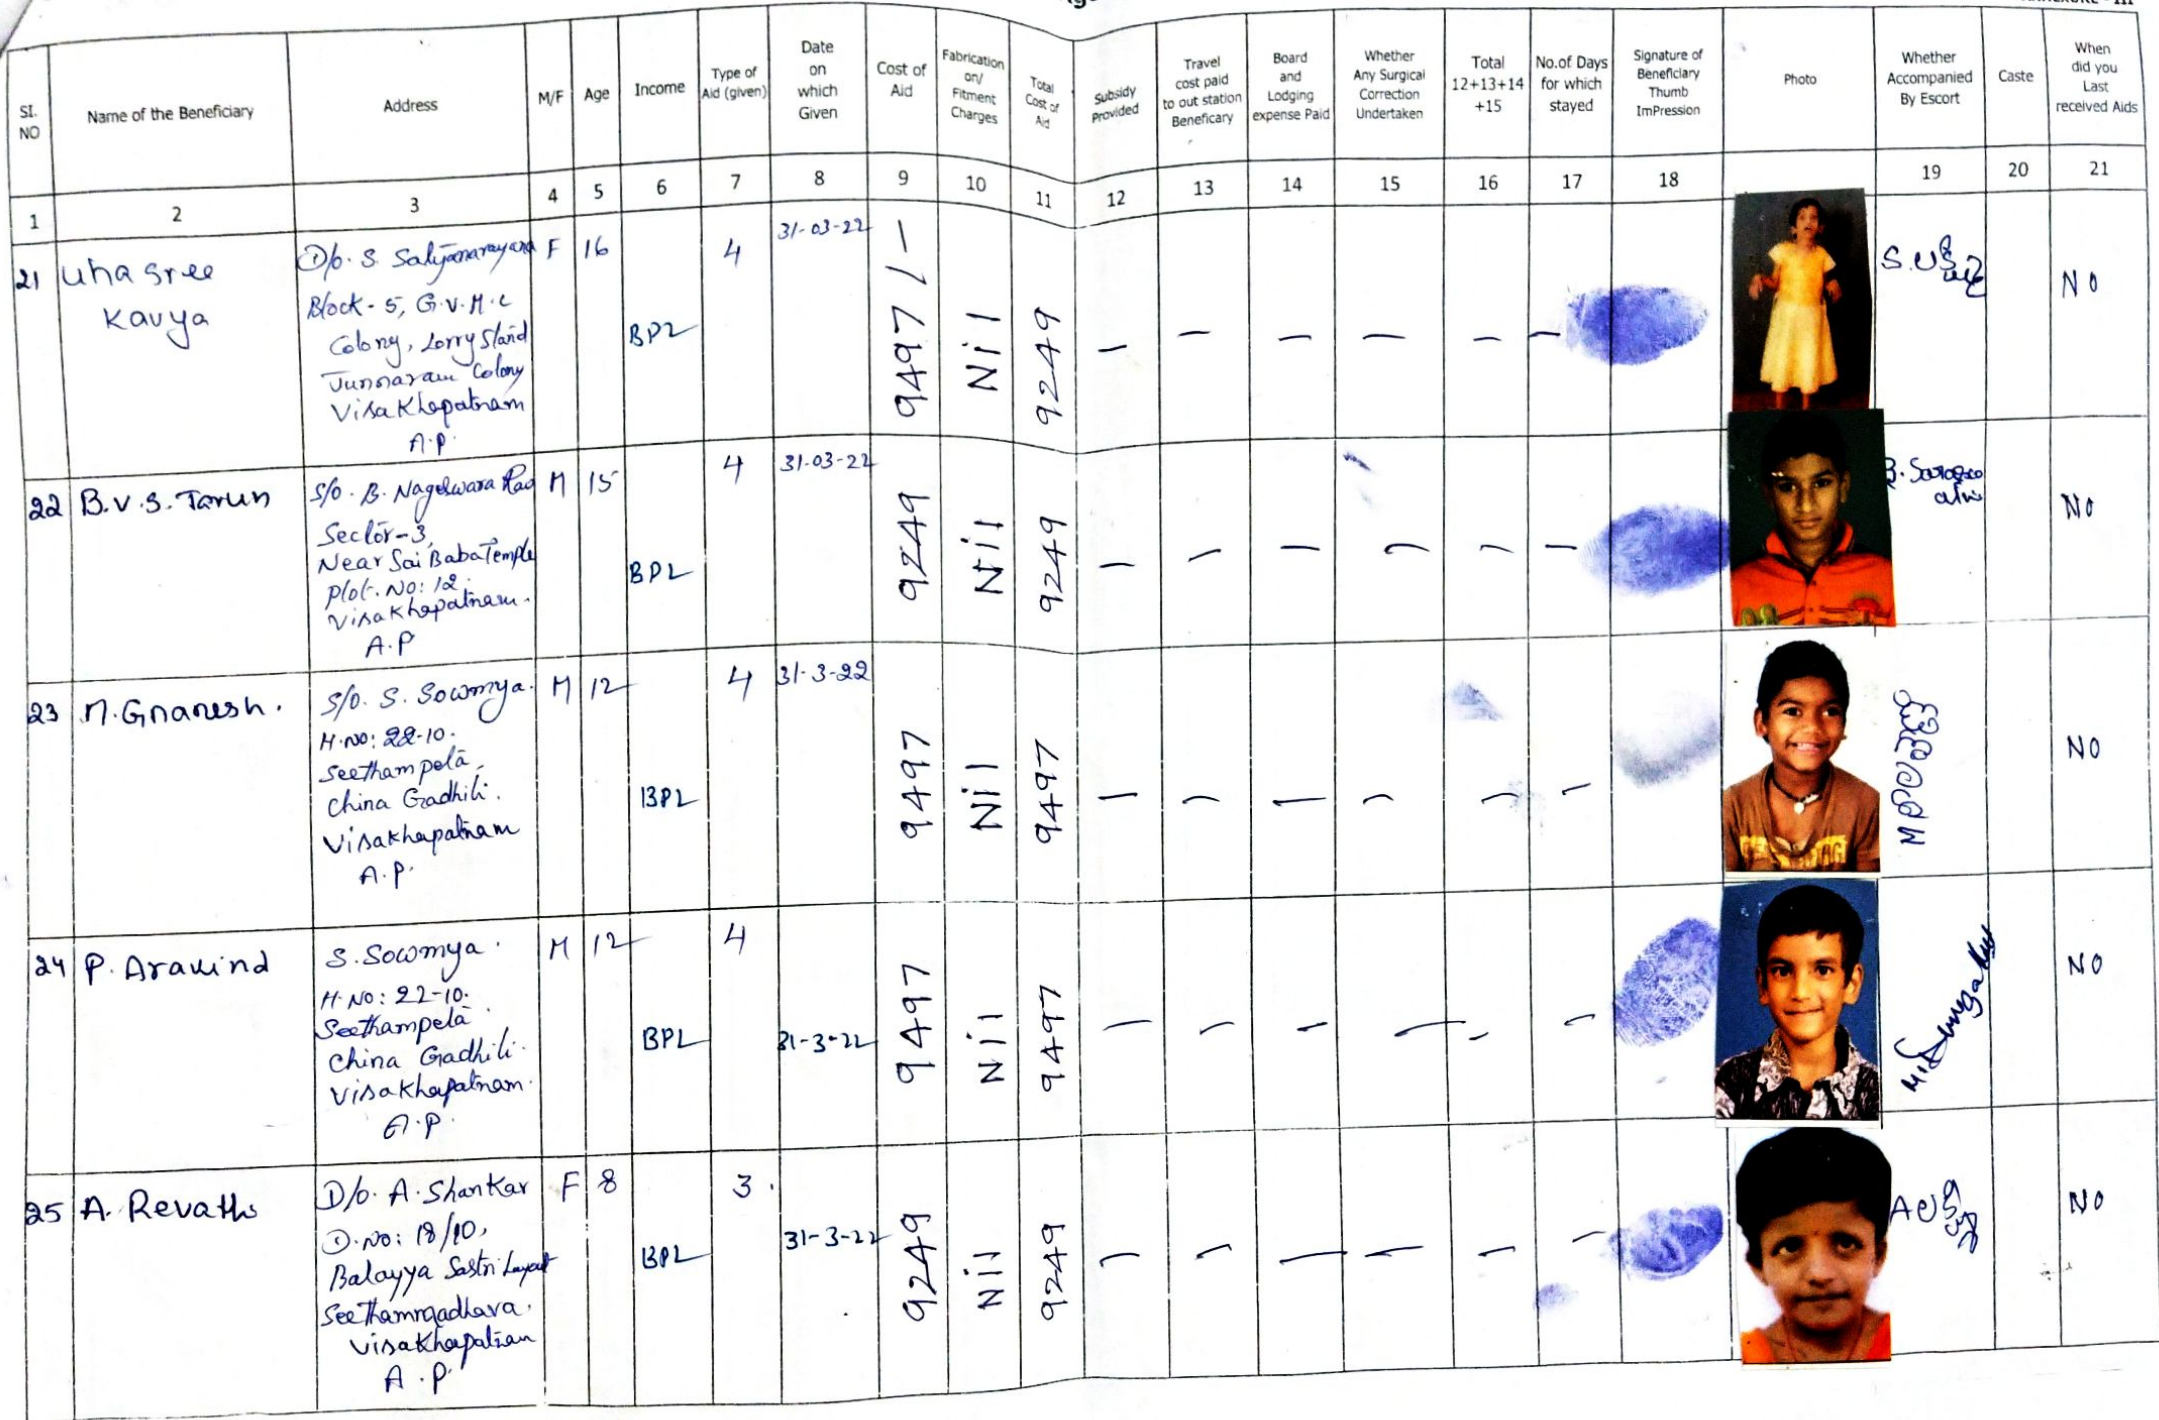 SI. NO
Name of the Beneficiary
Address
M/F
Age
Income
Type of Aid (given)
Date on which Given
Cost of Aid
Fabrication on/ Fitment Charges
Total Cost of Aid
Subsidy Provided
Travel cost paid to out station Beneficary
Board and Lodging expense Paid
Whether Any Surgical Correction Undertaken
Total 12+13+14 +15
No.of Days for which stayed
Signature of Beneficiary Thumb ImPression
Photo
Whether Accompanied By Escort
Caste
When did you Last received Aids
1 2 3 4 5 6 7 8 9 10 11 12 13 14 15 16 17 18 19 20 21
21
Uha Sree
Kavya
D/o. S. Satyanarayana
Block - 5, G.V.M.C
Colony, Lorry Stand
Colony
Visakhapatnam
A.P.
F
16
BPL
4
31-03-22
9497/-
Nil
9249
– – – – – –
NO
22
B.V.S. Tarun
S/o. B. Nageswara Rao
Sector-3,
Near Sai Baba Temple
Plot. No: 12.
Visakhapatnam.
A.P
M
15
BPL
4
31-03-22
9249
Nil
9249
– – – – – –
NO
23
M. Gnanesh.
S/o. S. Sowmya.
H.NO: 22-10.
Seethampeta,
China Gadhili.
Visakhapatnam
A.P.
M
12
BPL
4
31-3-22
9497
Nil
9497
– – – – – –
NO
24
P. Aravind
S. Sowmya.
H.No: 22-10.
Seethampeta.
China Gadhili.
Visakhapatnam.
A.P.
M
12
BPL
4
31-3-22
9497
Nil
9497
– – – – – –
NO
25
A. Revathi
D/o. A. Shankar
D.No: 18/10,
Balayya Sastri Layout
Seethammadhara.
Visakhapatnam
A.P.
F
8
BPL
3.
31-3-22
9249
Nil
9249
– – – – – –
NO